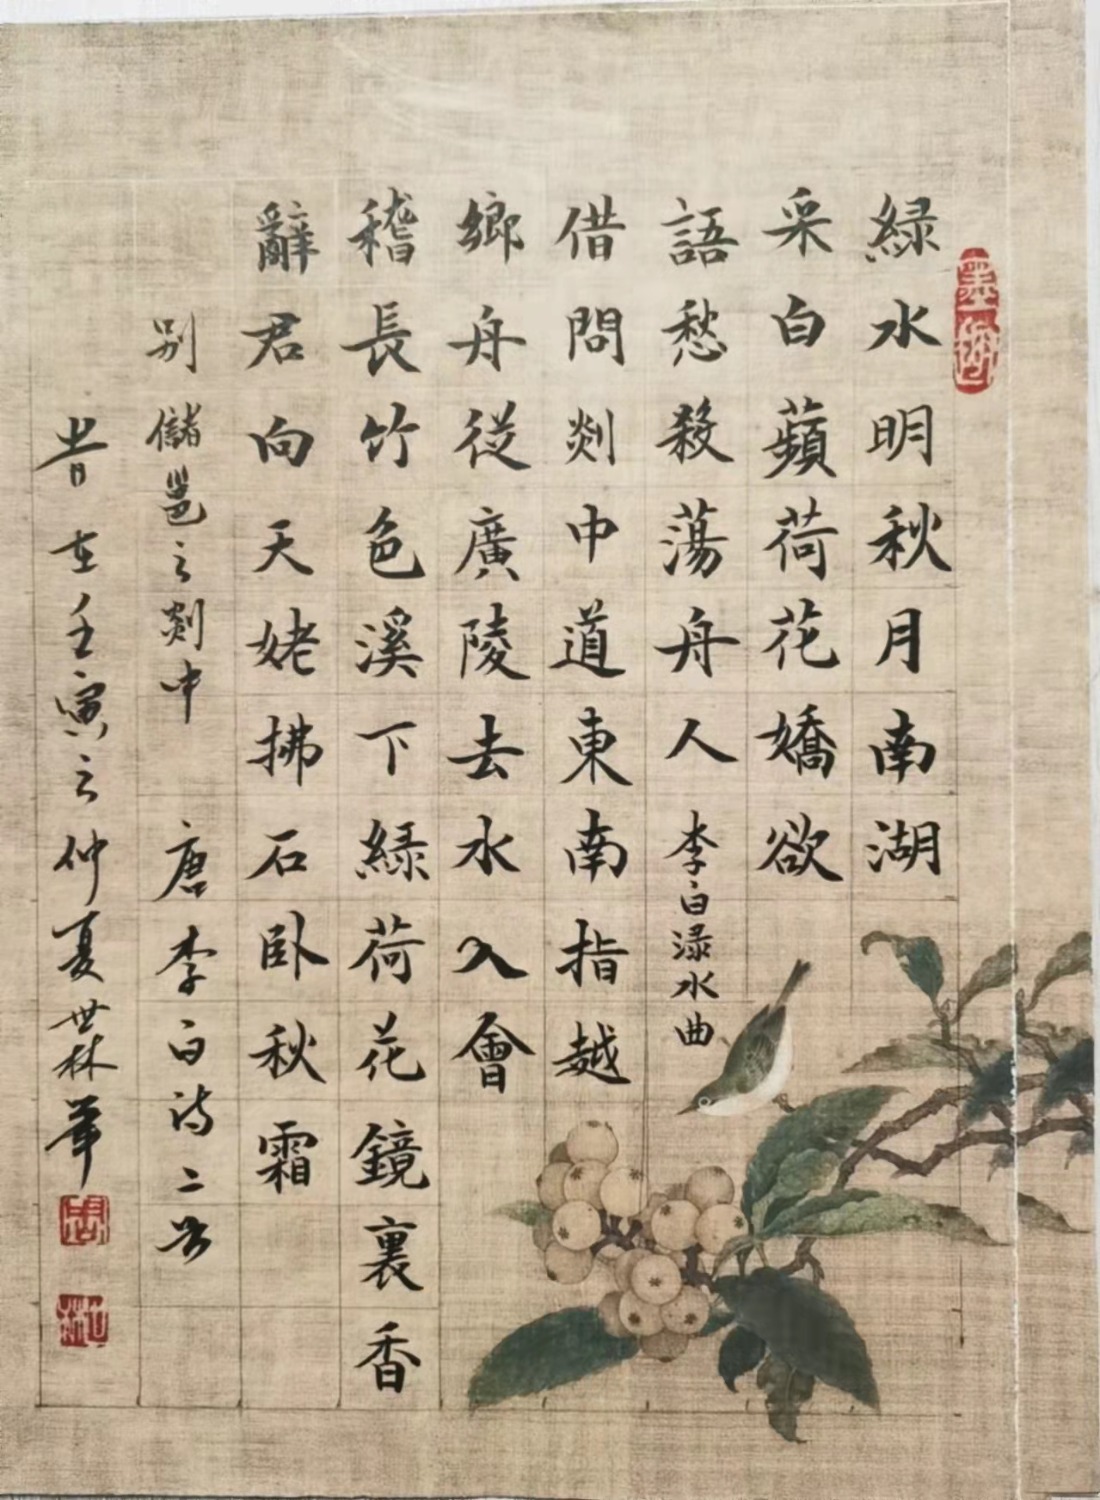 綠水明秋月南湖
采白蘋荷花嬌欲
語愁殺蕩舟人 李白淥水曲
借問剡中道東南指越
鄉舟從廣陵去水入會
稽長竹色溪下綠荷花鏡裏香
辭君向天姥拂石臥秋霜
別儲邕之剡中 唐李白詩二首
時在壬寅之仲夏世林筆